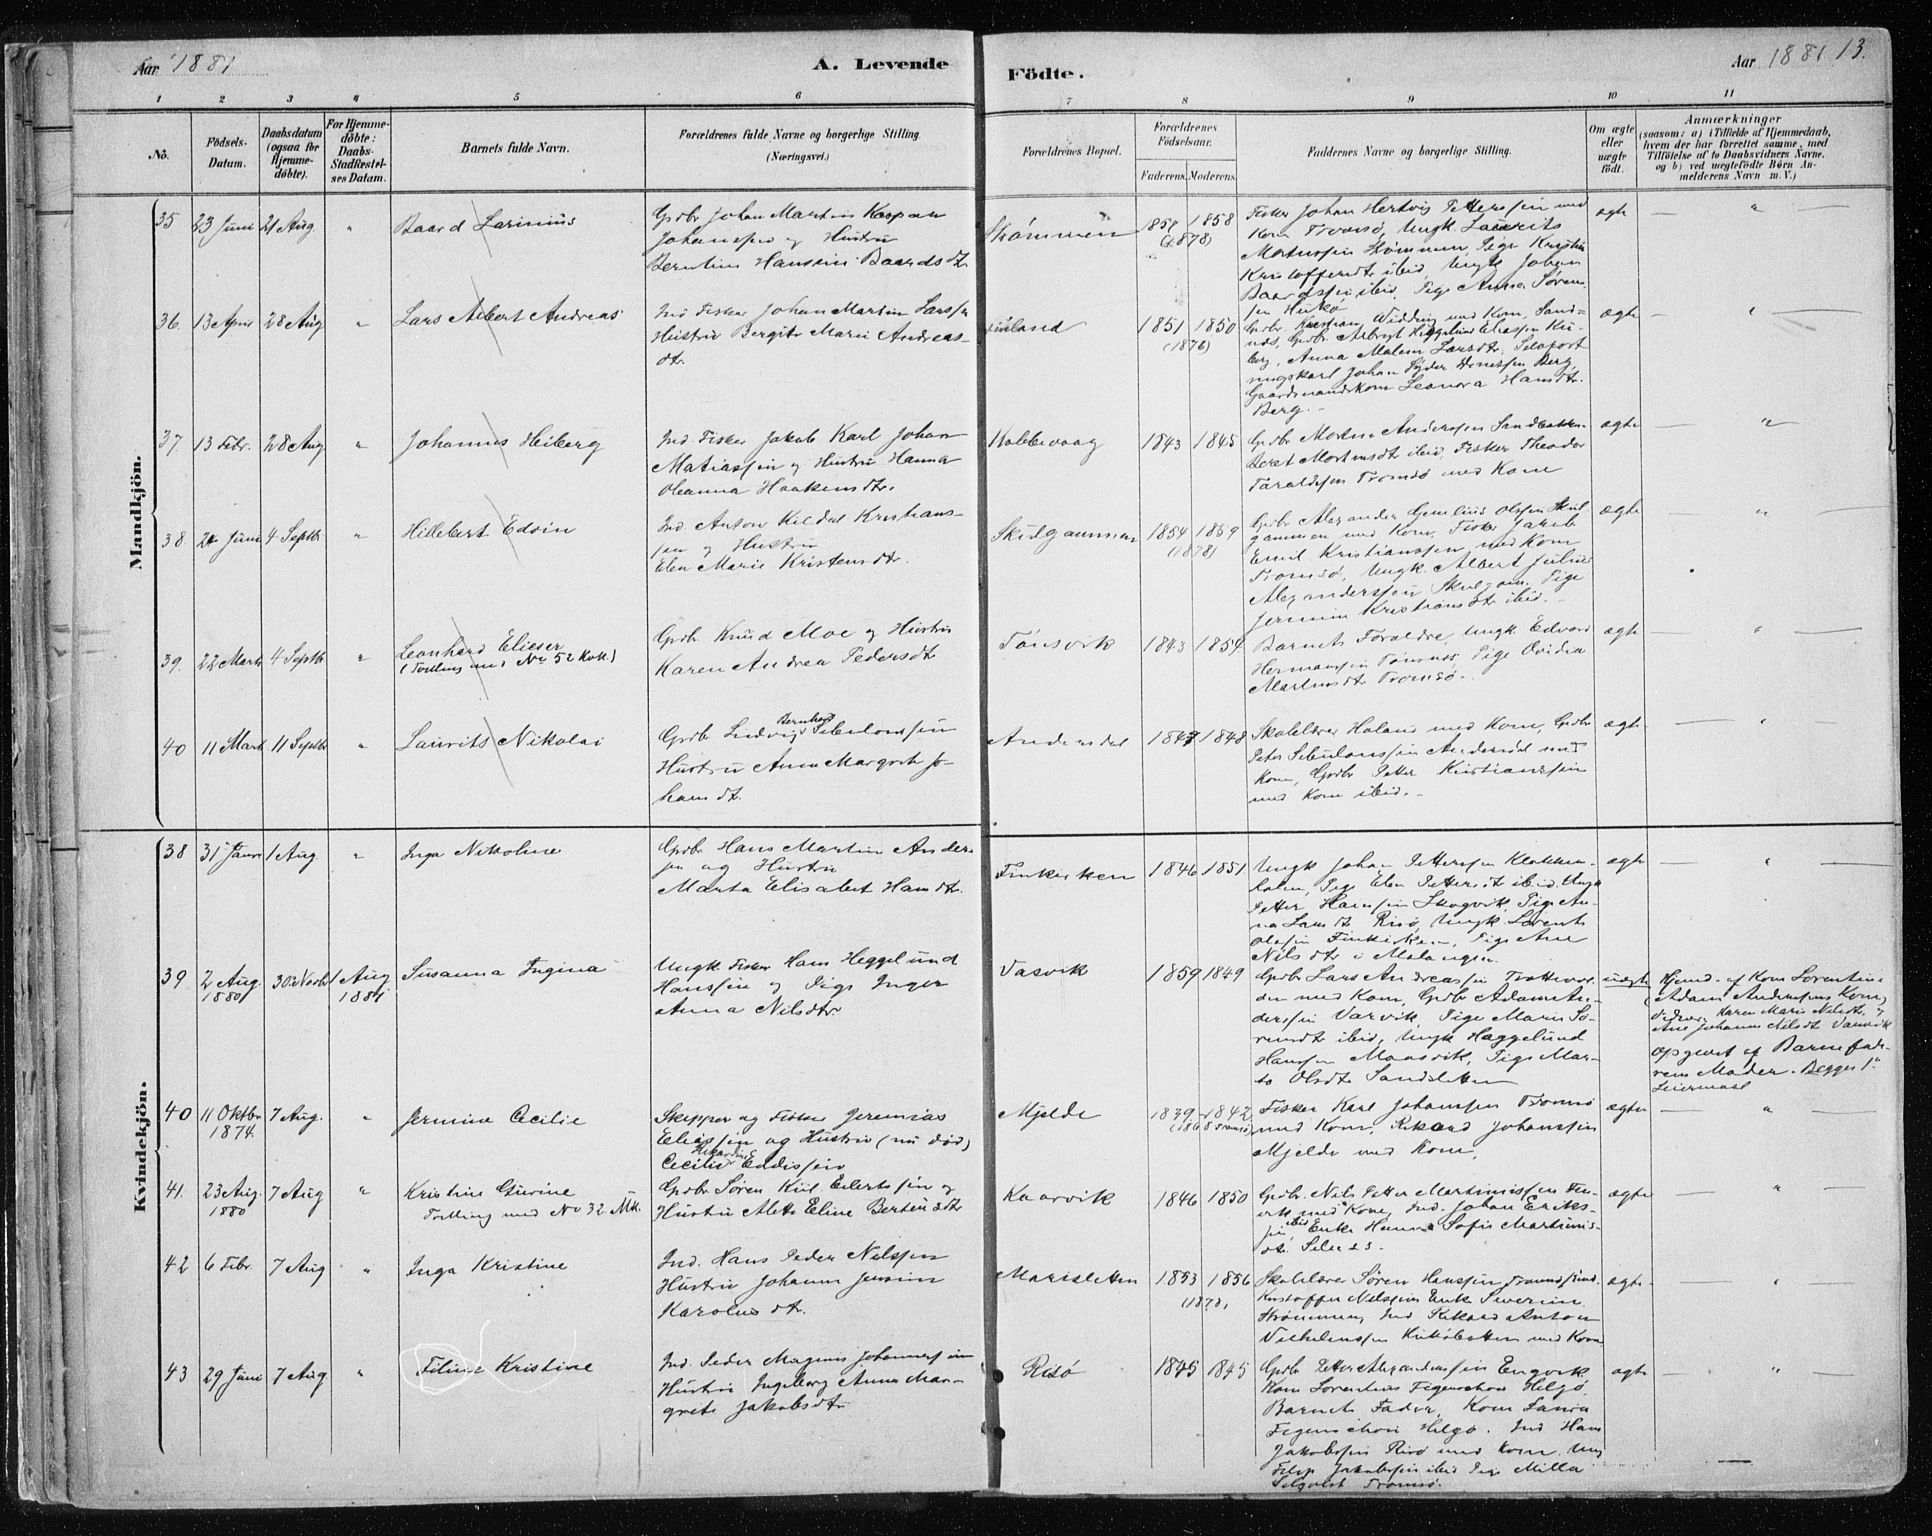 Aar 1881
A. Levende
Födte.
Aar 1881 13.
1 2 3 4 5 6 7 8 9 10 11
No.
Födsels-
Datum.
Daabsdatum
(ogsaa for
Hjemme-
döbte).
For Hjemme-
döbte:
Daabs-
Stadfæstel-
ses Datum.
Barnets fulde Navn.
Forældrenes fulde Navne og borgerlige Stilling.
(Næringsvei.)
Forældrenes Bopæl.
Forældrenes
Födselsaar.
Faderens. Moderens.
Faddernes Navne og borgerlige Stilling.
Om ægte
eller
uægte
födt.
Anmærkninger
(saasom: a) i Tilfælde af Hjemmedaab,
hvem der har forrettet samme, med
Tilföielse af to Daabsvidners Navne,
og b) ved uægtefödte Börn An-
melderens Navn m. V.)
Mandkjön.
35 23 Juni 21 Aug. "
Baard Larinius
Grdbr Johan Martin Kaspar
Johanssen og Hustru
Berntine Hansine Baardsdtr
Strømmen
1857 1858
(1878)
Fisker Johan Hertvig Petterssen med
Kone Tromsø, Ungk. Laurits
Mortenssen Strømmen, Pige Kristin
Kristoffersdtr ibid, Ungk Johan
Baardssen ibid, Pige Anna Søren-
ægte
36. 13 April 28 Aug "
Lars Albert Andreas
Ind Fisker Johan Martin Larssen
Hustru Bergite Marie Andreas-
dtr.
1851 1850
(1876)
Anna Malene Larsdtr.
Gaardmandskone Leonora Hansdtr.
Berg.
ægte
37 13 Febr. 28 Aug "
Johannes Heiberg
Ind. Fisker Jakob Karl Johan
Matiassen og Hustru Hanna
Oleanna Haakensdtr.
Kobbevaag
1843 1845
Grdbr Morten Anderssen Sandbakken
Beret Mortensdtr ibid, Fisker Theodor
Taraldsen Tromsø med Kone
ægte
38. 21 Juni 4 Septbr "
Hillebert Edvin
Ind. Anton Kildal Kristians-
sen og Hustru
Elen Marie Kristensdtr.
Skulgammen
1854 1859
(1878)
Grdbr Alexander Cornelius Olssen Skul
gammen med Kone, Fisker Jakob
Emil Kristianssen med Kone
Tromsø, Ungk. Albert Julius
Alexanderssen Skulgam. Pige
Jermine Kristiansdtr ibid.
ægte
39. 22 Marts 4 Septbr "
Leonhard Elieser
(Tvilling med No 52 Kvk.)
Grdbr. Knud Moe og Hustru
Karen Andrea Pedersdtr
Tønsvik
1843 1854
Barnets Forældre, Ungk Edvard
Hermanssen Tønsnes, Pige Ovidia
Martinsdtr Tromsø.
ægte
40 11 Marts 11 Septbr "
Laurits Nikolai
Grdb Ludvig Bernhard Sebulonssen
Hustru Anne Margrete Jo-
hansdtr.
Andersdal
1847 1848
Skolelærer Holand med Kone, Grdbr
Peter Sebulonssen Andersdal med
Kone, Grdbr Petter Kristianssen
med Kone ibid.
ægte
Kvindekjön.
38 31 Janr 1 Aug. "
Inga Nikoline
Grdbr Hans Martin Anders-
sen og Hustru
Marta Elisabet Hansdtr.
Finkroken
1846 1851.
Ungk Johan Petterssen Klokken-
holm, Pige Elen Pettersdtr ibid. Ungk
Petter Hanssen Skogvik, Pige An-
na Larsdtr Risø, Ungk Sørent
Olssen Finkroken, Pige Ane
Nilsdtr i Malangen.
ægte
39 2 Aug. 1880 30 Novbr 1 Aug 1881
Susanna Ingina
Ungk Fisker Hans Heggelund
Hanssen og Pige Inger
Anna Nilsdtr
Vasvik
1859 1849
Grdbr Lars Andreassen
med Kone, Grdbr Adam An-
derssen Vasvik, Pige Maren Sø-
rensdtr ibid, Ungk Heggelund
Hanssen Maasvik, Pige Mar-
ta Olsdtr Sandsletten
uægte
Hjemd. af Kone Lorentine
(Adam Anderssens Kone)
Vidner Karen Marie Nilsdtr og
Ane Johanne Nilsdtr Vasvik
opgivet af Barnefade-
rens Moder. Begges 1.
Leiermaal
40 11 Oktbr 1874. 7 Aug. "
Jermine Cecilie
Skipper og Fisker Jeremias
Eliassen og Hustru (nu død)
Cecilie Eddissen
Mjelde
1839 1842
Fisker Karl Johanssen Tromsø
med Kone, Rikard Johanssen
Mjelde med Kone.
ægte
41. 23 Aug. 1880 7 Aug "
Kristine Gurine
Tvilling med No 32. Mk.
Grdbr Søren Kiil Eilertssen og
Hustru Mette Eline Bertheusdtr
Kaarvik
1846 1850
Grdbr. Nils Petter Martinissen
med Kone, Ind. Johan Eriks-
sen ibid, Enke Hanna Sofie Martinis-
dtr.
ægte
42 6 Febr. 7 Aug "
Inga Kristine
Ind. Hans Peder Nilssen
Hustru Johanne Jensine
Karolusdtr.
Marisletten
1853 1856
(1878)
Skolelærer Søren Hanssen Tromsøsund.
Kristoffer Nilssen Enke Severine
Strømmen, Ind Rikard Anton
Vilhelmssen med Kone
ægte
43 29 Juni 7 Aug "
Filine Kristine
Ind. Peder Magnus Johannessen
Hustru Ingeborg Anna Mar-
grete Jakobsdtr
Risø
1845 1845
Grdbr Petter Alexanderssen Engvik
Kone Lorentine Figenschou Helgø,
Barnets Fader, Kone Laura
Figenschou Helgø. Ind Hans
Jakobssen Risø med Kone. Ung
Filip Jakobssen ibid Pige Milla
Tromsø.
ægte